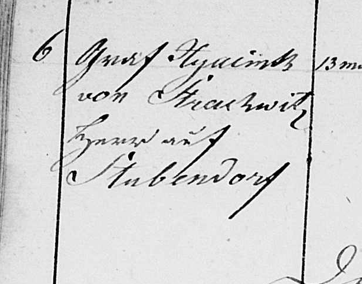 6 Graf Hyacinth 13
von Strachwitz
Herr auf
Stubendorf